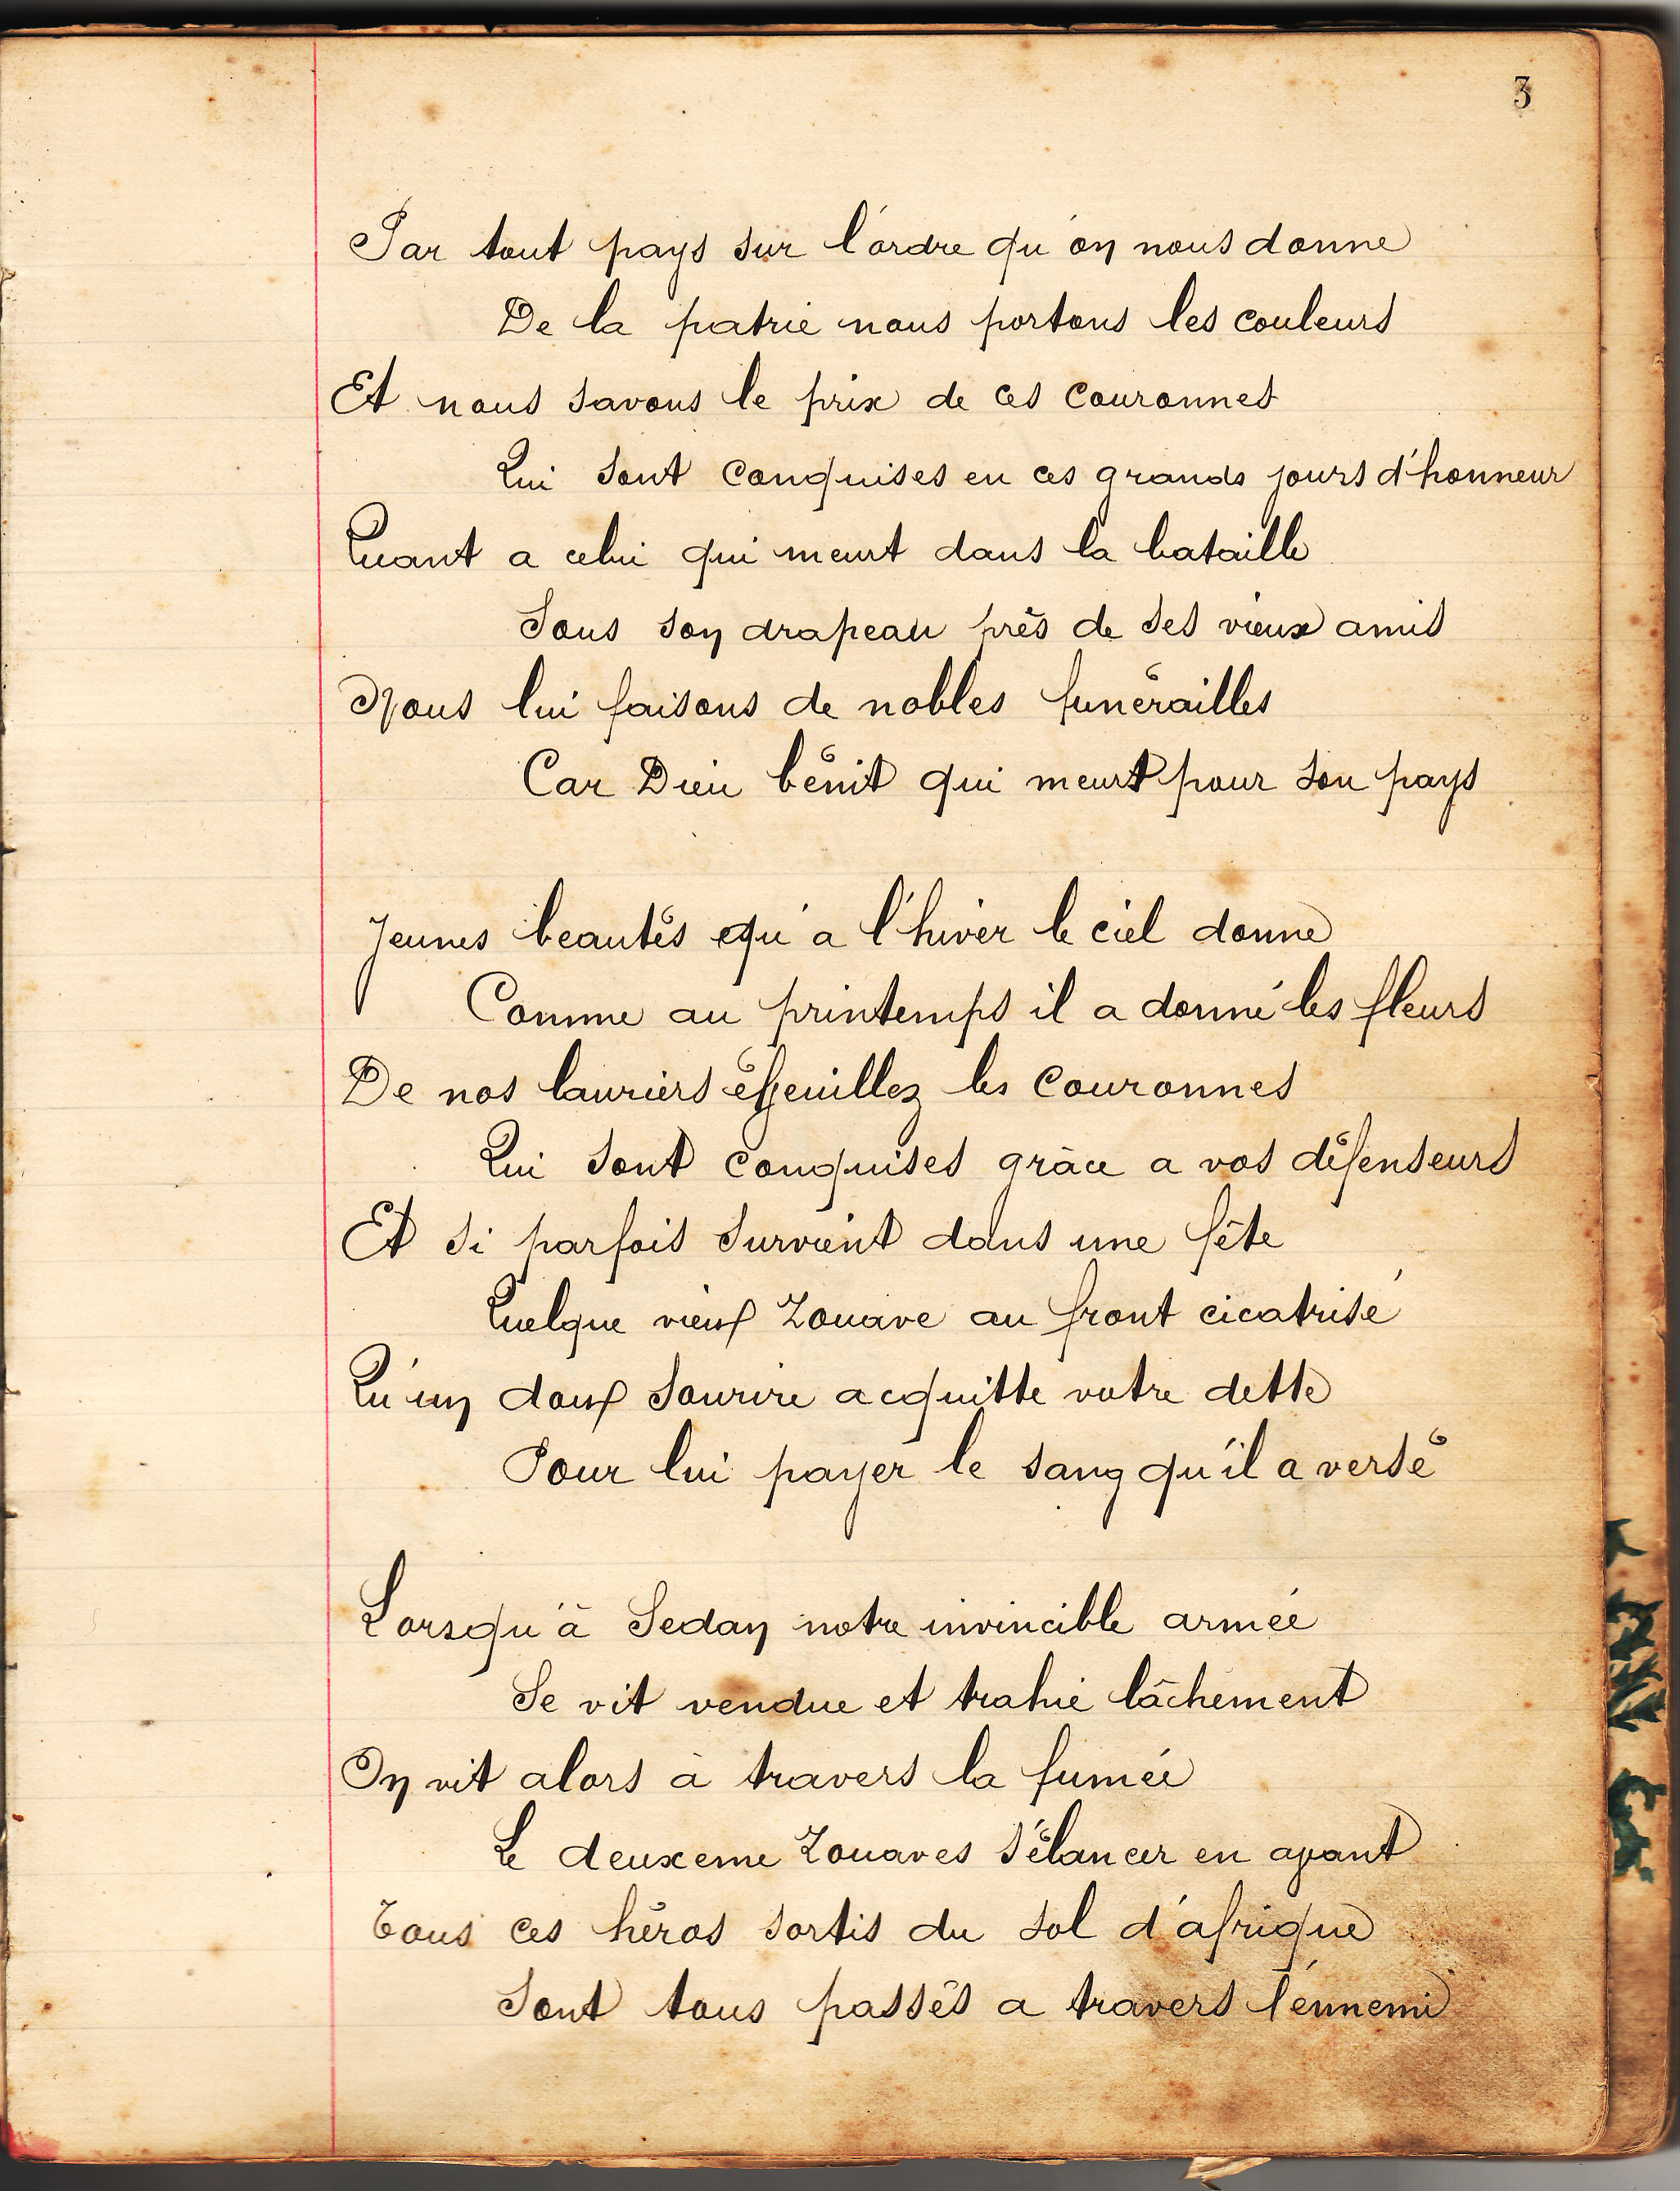 3
Par tout pays sur l'ordre qu'on nous donne
De la patrie nous portons les couleurs
Et nous savons le prix de ces couronnes
Qui sont conquises en ces grands jours d'honneur
Quant a celui qui meurt dans la bataille
Sous son drapeau près de ses vieux amis
Nous lui faisons de nobles funérailles
Car Dieu bénit qui meurt pour son pays
Jeunes beautés qu'a l'hiver le ciel donne
Comme au printemps il a donné les fleurs
De nos lauriers éffeuillez les couronnes
Qui sont conquises grâce a vos défenseurs
Et si parfois survient dans une fête
Quelque vieux Zouave au front cicatrisé
Qu'un doux sourire acquitte votre dette
Pour lui payer le sang qu'il a versé
Lorsqu'à Sedan notre invincible armée
Se vit vendue et trahie lâchement
On vit alors à travers la fumée
Le deuxeme Zouaves s'élancer en avant
Tous ces héros sortis du sol d'afrique
Sont tous passés a travers l'ennemi